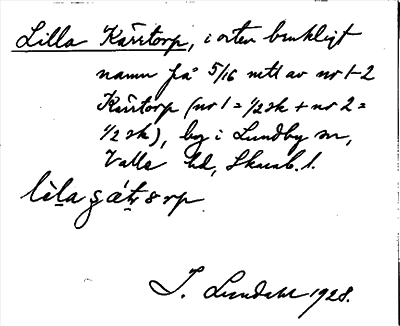 Lilla Kärrtorp, i orten brukligt
namn på 5/16 mtl av nr 1-2
Kärrtorp (nr 1 = 1/2 sk + nr 2 =
1/2 sk), by i Lundby sn,
Valle hd, Skarab. l.
J. Lundahl 1928.